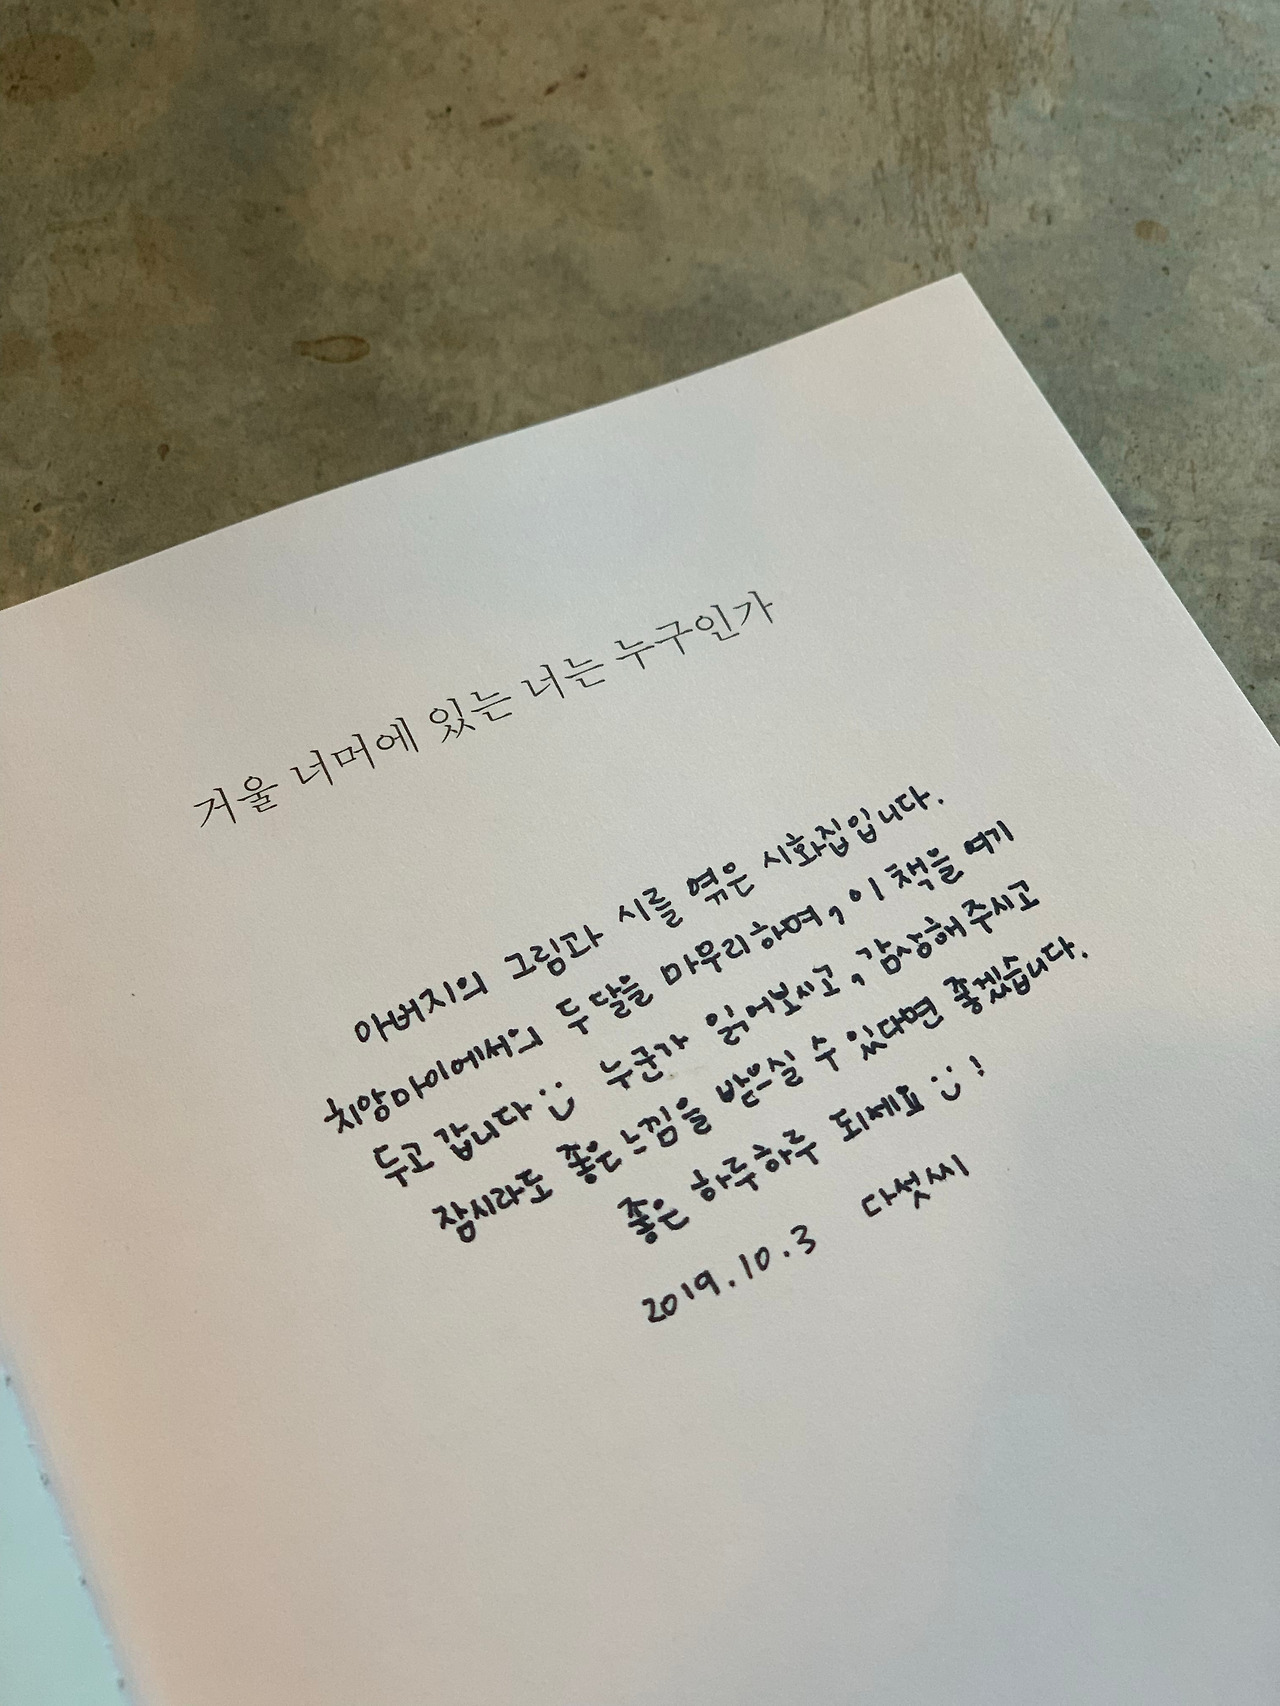 거울 너머에 있는 너는 누구인가
아버지의 그림과 시를 엮은 시화집입니다.
치앙마이에서의 두 달을 마무리하며, 이 책을 여기
두고 갑니다 :) 누군가 읽어보시고, 감상해 주시고
잠시라도 좋은 느낌을 받으실 수 있다면 좋겠습니다.
좋은 하루하루 되세요 :) !
2019.10.3 다섯씨